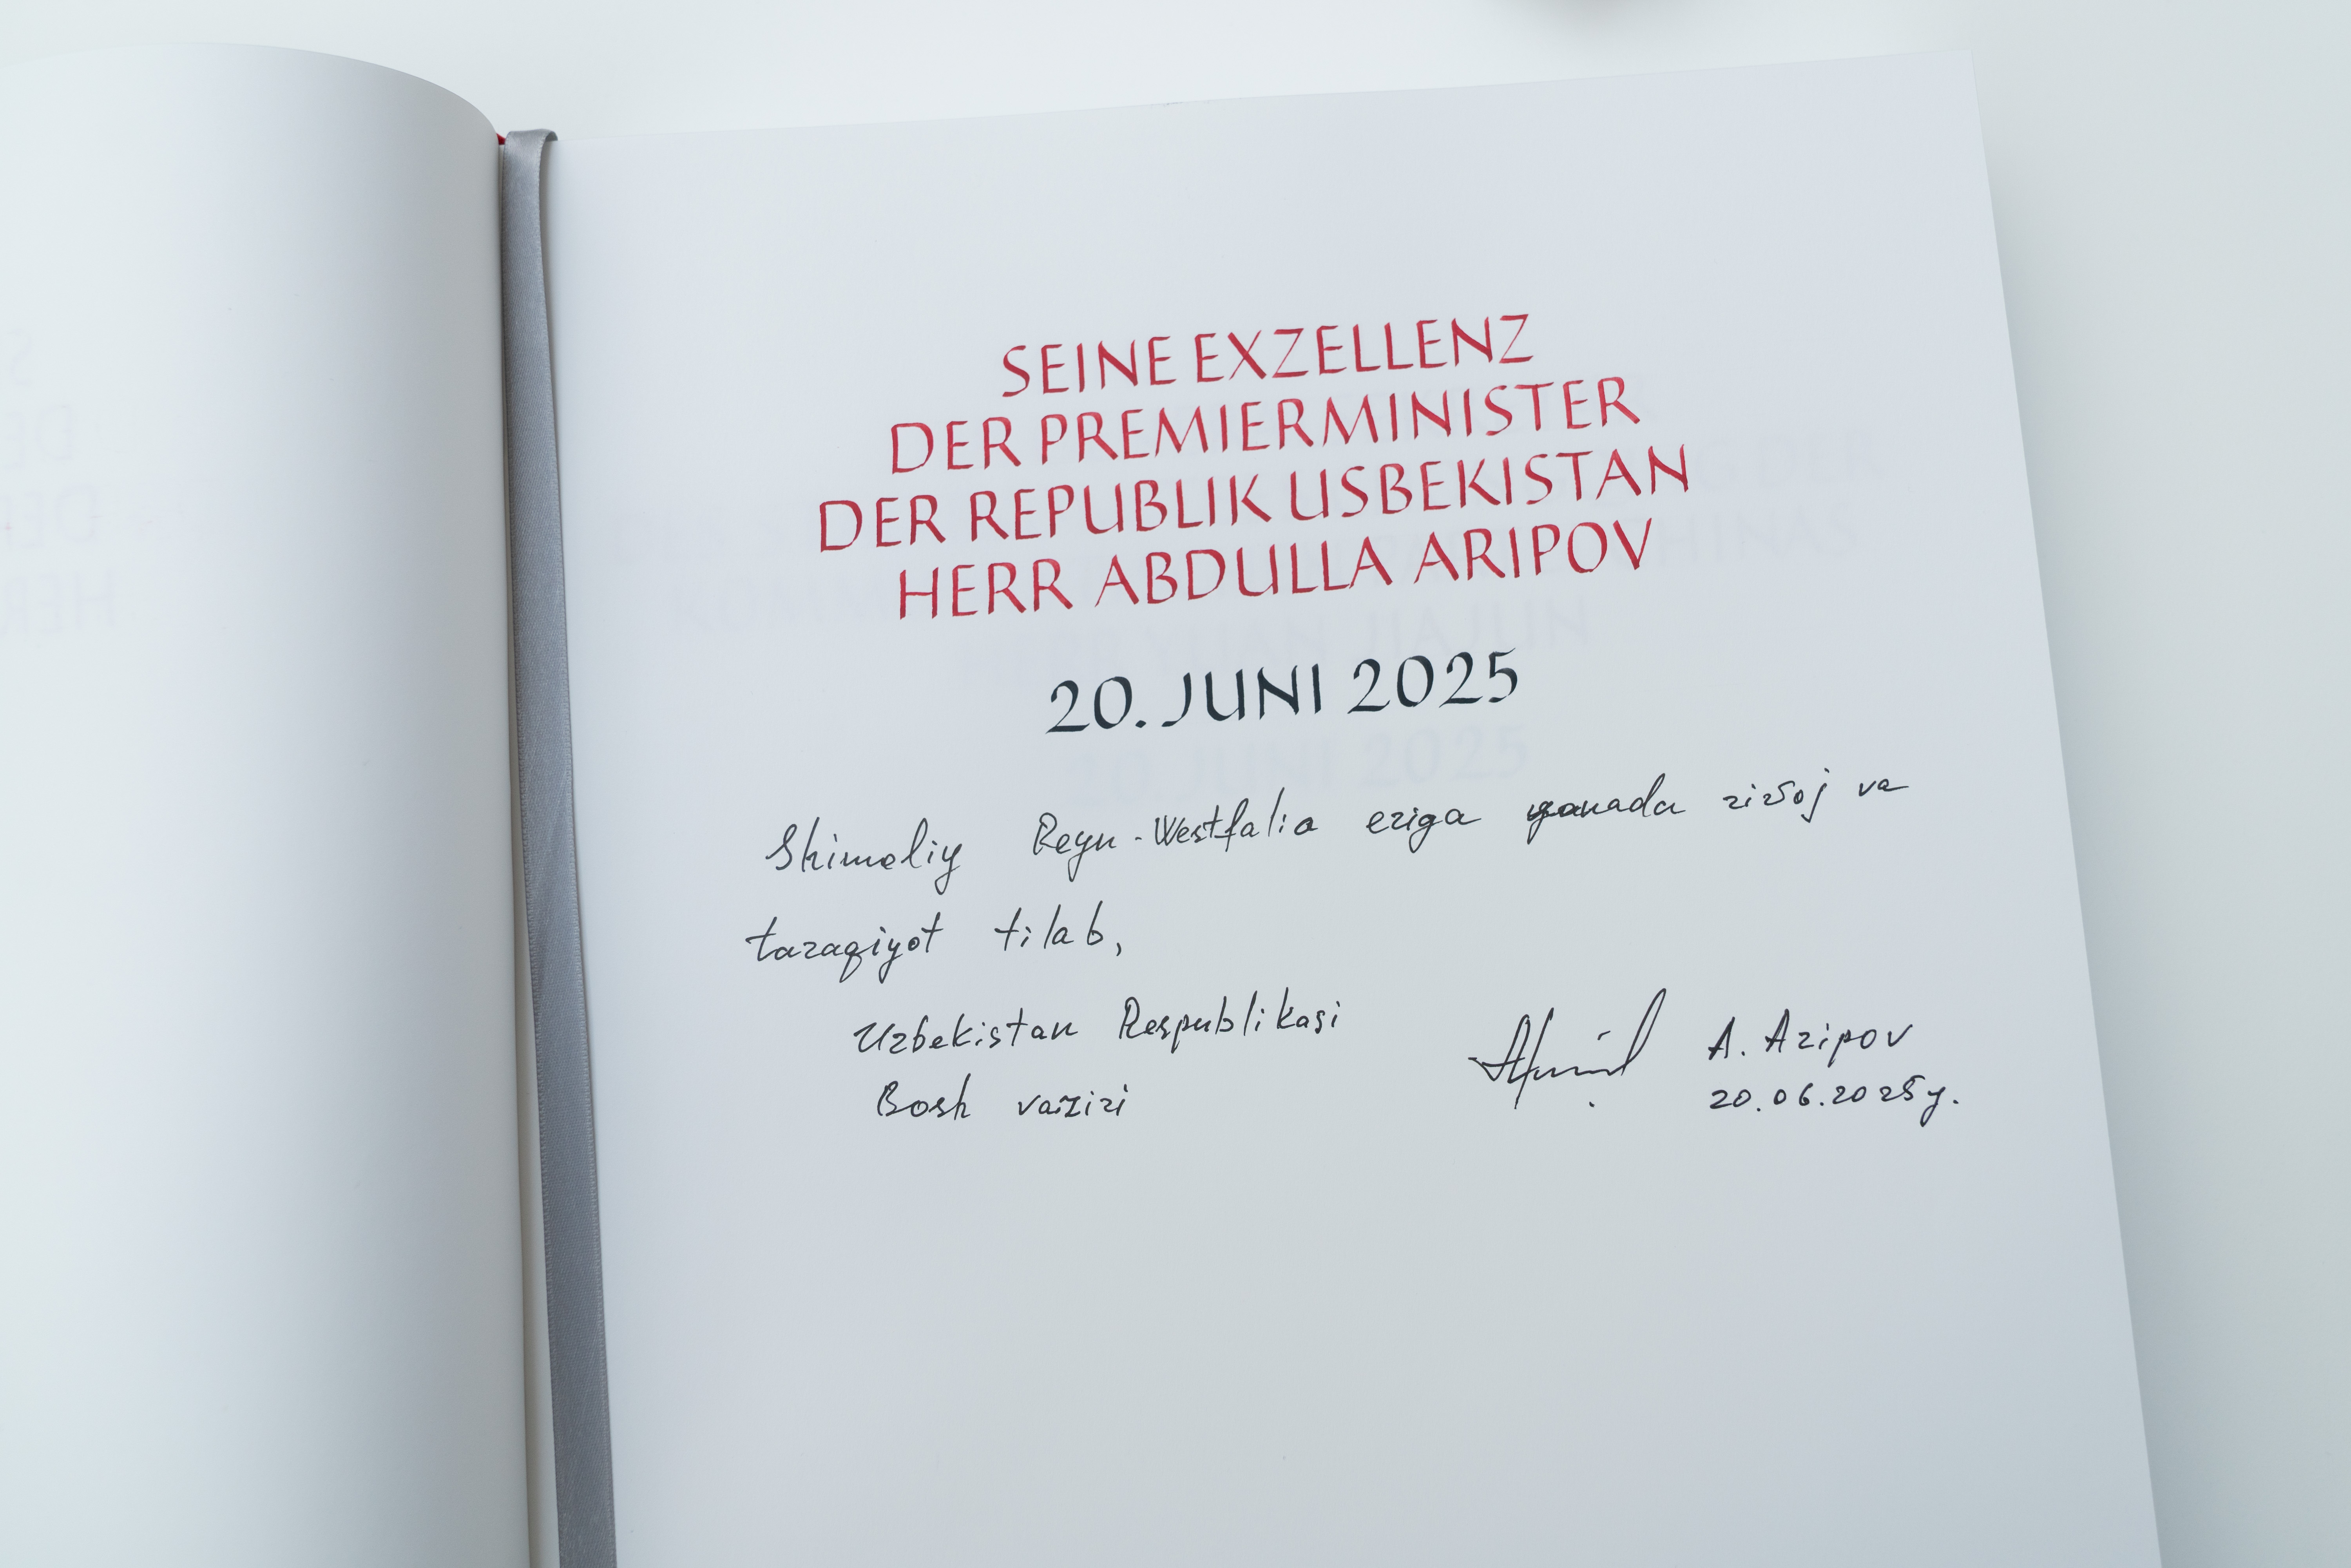 SEINE EXZELLENZ
DER PREMIERMINISTER
DER REPUBLIK USBEKISTAN
HERR ABDULLA ARIPOV
20. JUNI 2025
Shimoliy Reyn-Westfalia eriga yanada rivoj va
taraqiyot tilab,
Uzbekistan Respublikasi
Bosh vaziri
A. Aripov
20.06.2025 y.